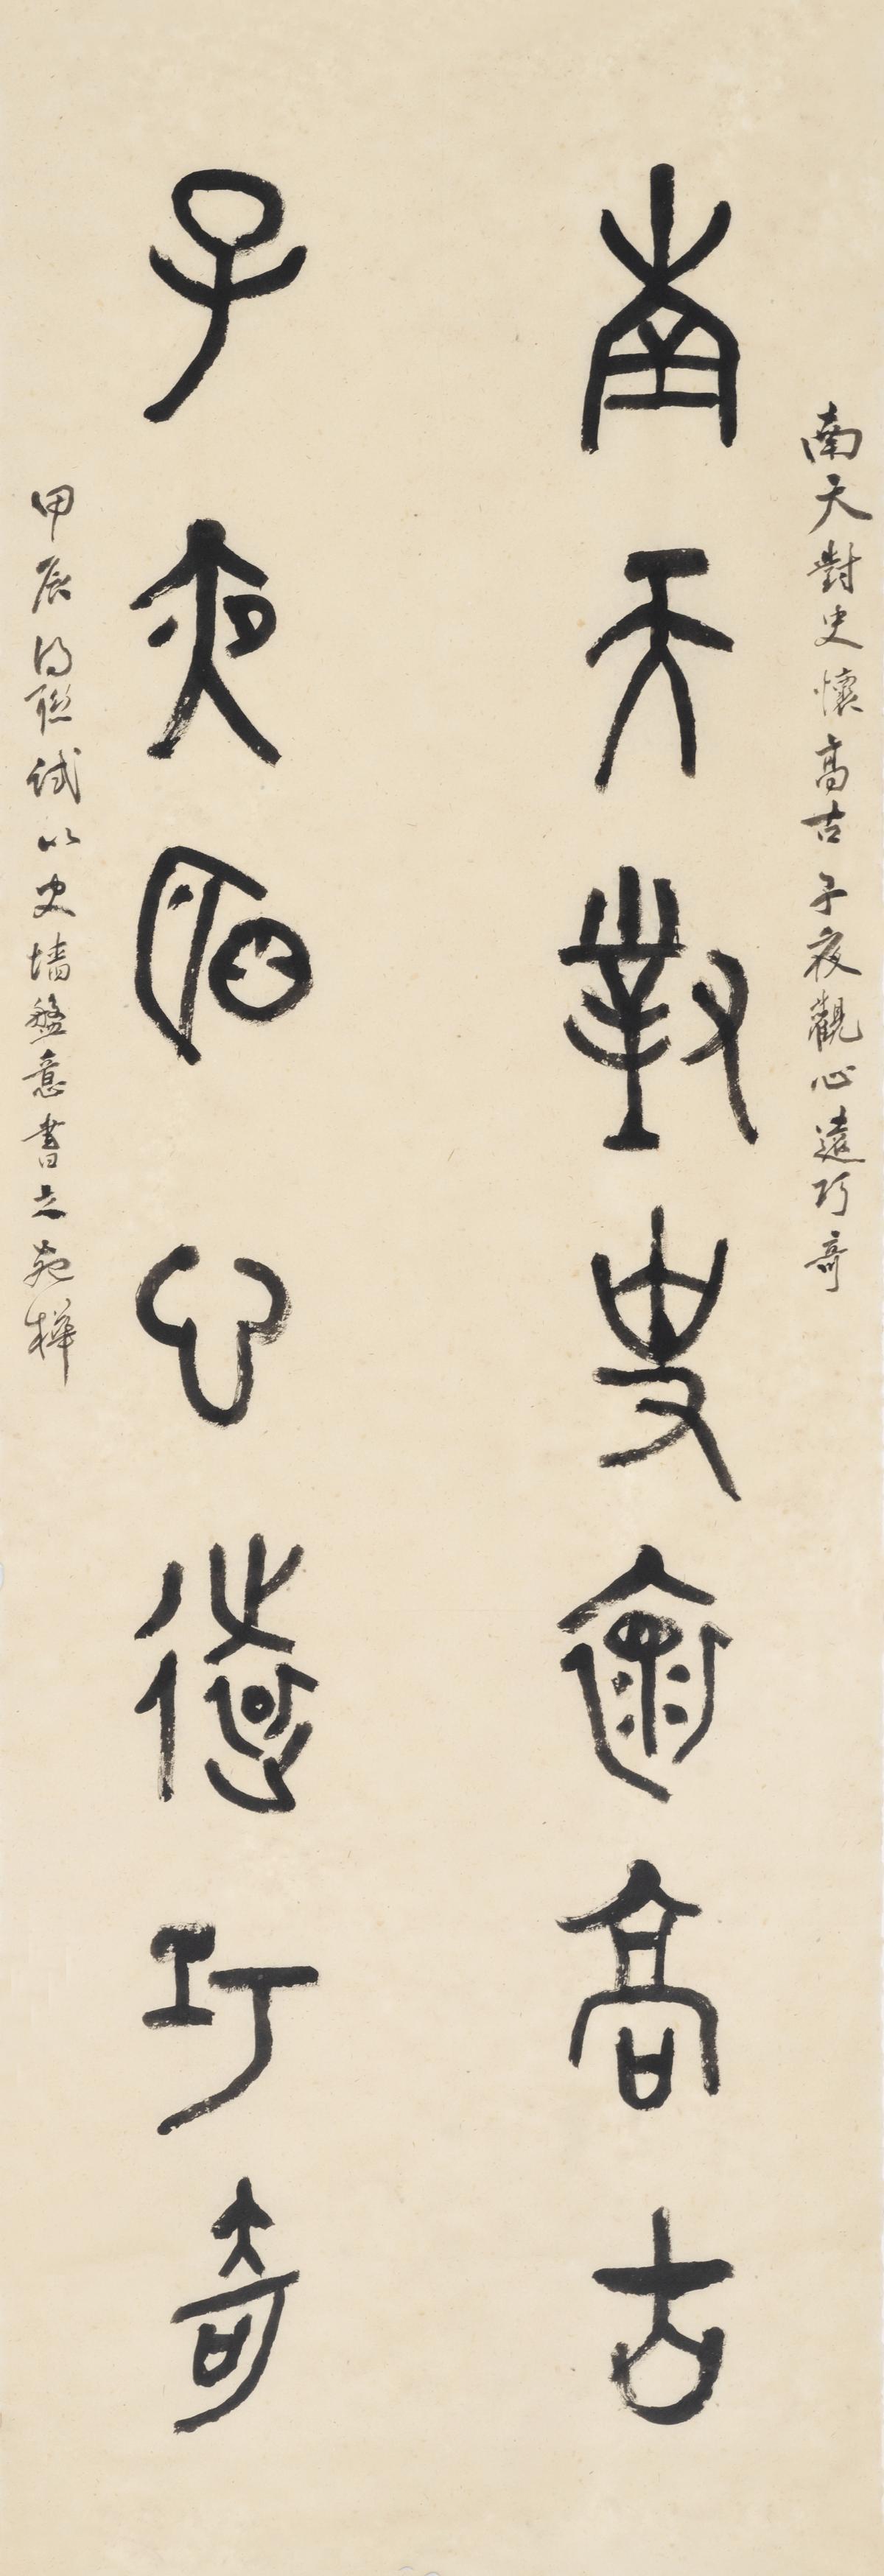 南天對史懷高古子夜觀心遠巧奇
南天對史懷高古
子夜觀心遠巧奇
甲辰得聯試以史墻盤意書之苑樺